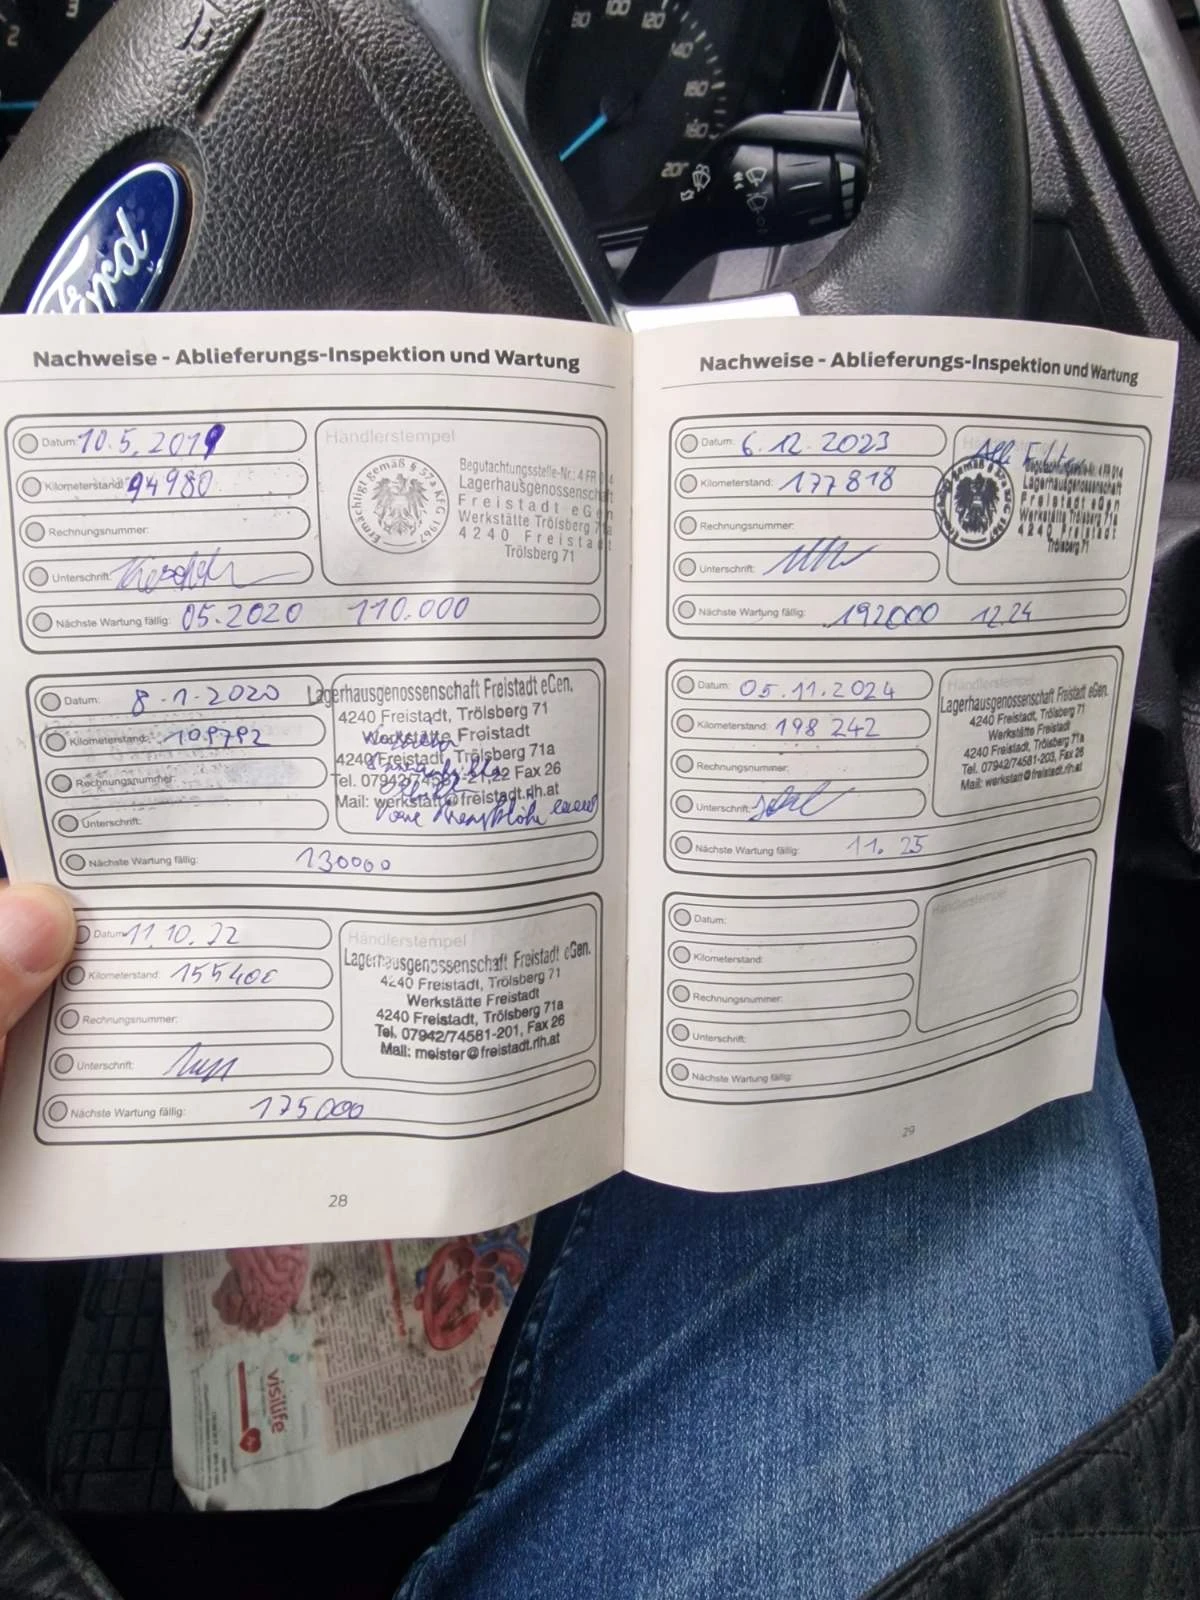 2
3
80
100
120
140
160
180
200
Ford
Nachweise - Ablieferungs-Inspektion und Wartung
Datum: 10.5.2019
Kilometerstand: 94980
Rechnungsnummer:
Unterschrift:
Nächste Wartung fällig: 05.2020 110.000
Händlerstempel
Ermächtigt gemäß § 57a KFG 1967
Begutachtungsstelle-Nr.: 4 FR 014
Lagerhausgenossenschaft
Freistadt eGen
Werkstätte Trölsberg 71a
4240 Freistadt
Trölsberg 71
Datum: 8-1-2020
Kilometerstand: 109792
Rechnungsnummer:
Unterschrift:
Nächste Wartung fällig: 130000
Lagerhausgenossenschaft Freistadt eGen.
4240 Freistadt, Trölsberg 71
Werkstätte Freistadt
4240 Freistadt, Trölsberg 71a
Tel. 07942/74581-21,22 Fax 26
Mail: werkstatt@freistadt.rlh.at
Datum: 11.10.22
Kilometerstand: 155400
Rechnungsnummer:
Unterschrift:
Nächste Wartung fällig: 175000
Händlerstempel
Lagerhausgenossenschaft Freistadt eGen.
4240 Freistadt, Trölsberg 71
Werkstätte Freistadt
4240 Freistadt, Trölsberg 71a
Tel. 07942/74581-201, Fax 26
Mail: meister@freistadt.rlh.at
28
Nachweise - Ablieferungs-Inspektion und Wartung
Datum: 6.12.2023
Kilometerstand: 177818
Rechnungsnummer:
Unterschrift:
Nächste Wartung fällig: 192000 12.24
Alle Filter
Ermächtigt gemäß § 57a KFG 1967
Begutachtungsstelle-Nr.: 4 FR 014
Lagerhausgenossenschaft
Freistadt eGen
Werkstätte Trölsberg 71a
4240 Freistadt
Trölsberg 71
Datum: 05.11.2024
Kilometerstand: 198 242
Rechnungsnummer:
Unterschrift:
Nächste Wartung fällig: 11. 25
Händlerstempel
Lagerhausgenossenschaft Freistadt eGen.
4240 Freistadt, Trölsberg 71
Werkstätte Freistadt
4240 Freistadt, Trölsberg 71a
Tel. 07942/74581-203, Fax 26
Mail: werkstatt@freistadt.rlh.at
Datum:
Kilometerstand:
Rechnungsnummer:
Unterschrift:
Nächste Wartung fällig:
Händlerstempel
29
visilife